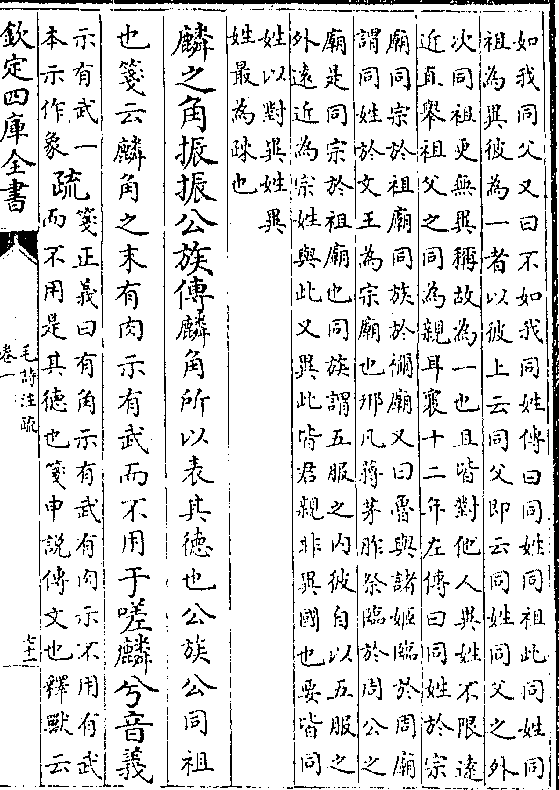 如我同父又曰不如我同姓傳曰同姓同祖此同姓同
祖為異彼為一者以彼上云同父即云同姓同父之外
次同祖更無異稱故為一也且皆對他人異姓不限遠
近直舉祖父之同為親耳襄十二年左傳曰同姓於宗
廟同宗於祖廟同族於禰廟又曰魯與諸姬臨於周廟
謂同姓於文王為宗廟也邢凡蔣茅胙祭臨於周公之
廟是同宗於祖廟也同族謂五服之内彼自以五服之
外遠近為宗姓與此又異此皆君親非異國也要皆同
姓以對異姓異
姓最為疎也
麟之角振振公族傳麟角所以表其德也公族公同祖
也箋云麟角之末有肉示有武而不用于嗟麟兮音義
示有武一
本示作象
疏
箋正義曰有角示有武有肉示不用有武
而不用是其德也箋申說傳文也釋獸云
欽定四庫全書
毛詩注疏
卷一
七十二